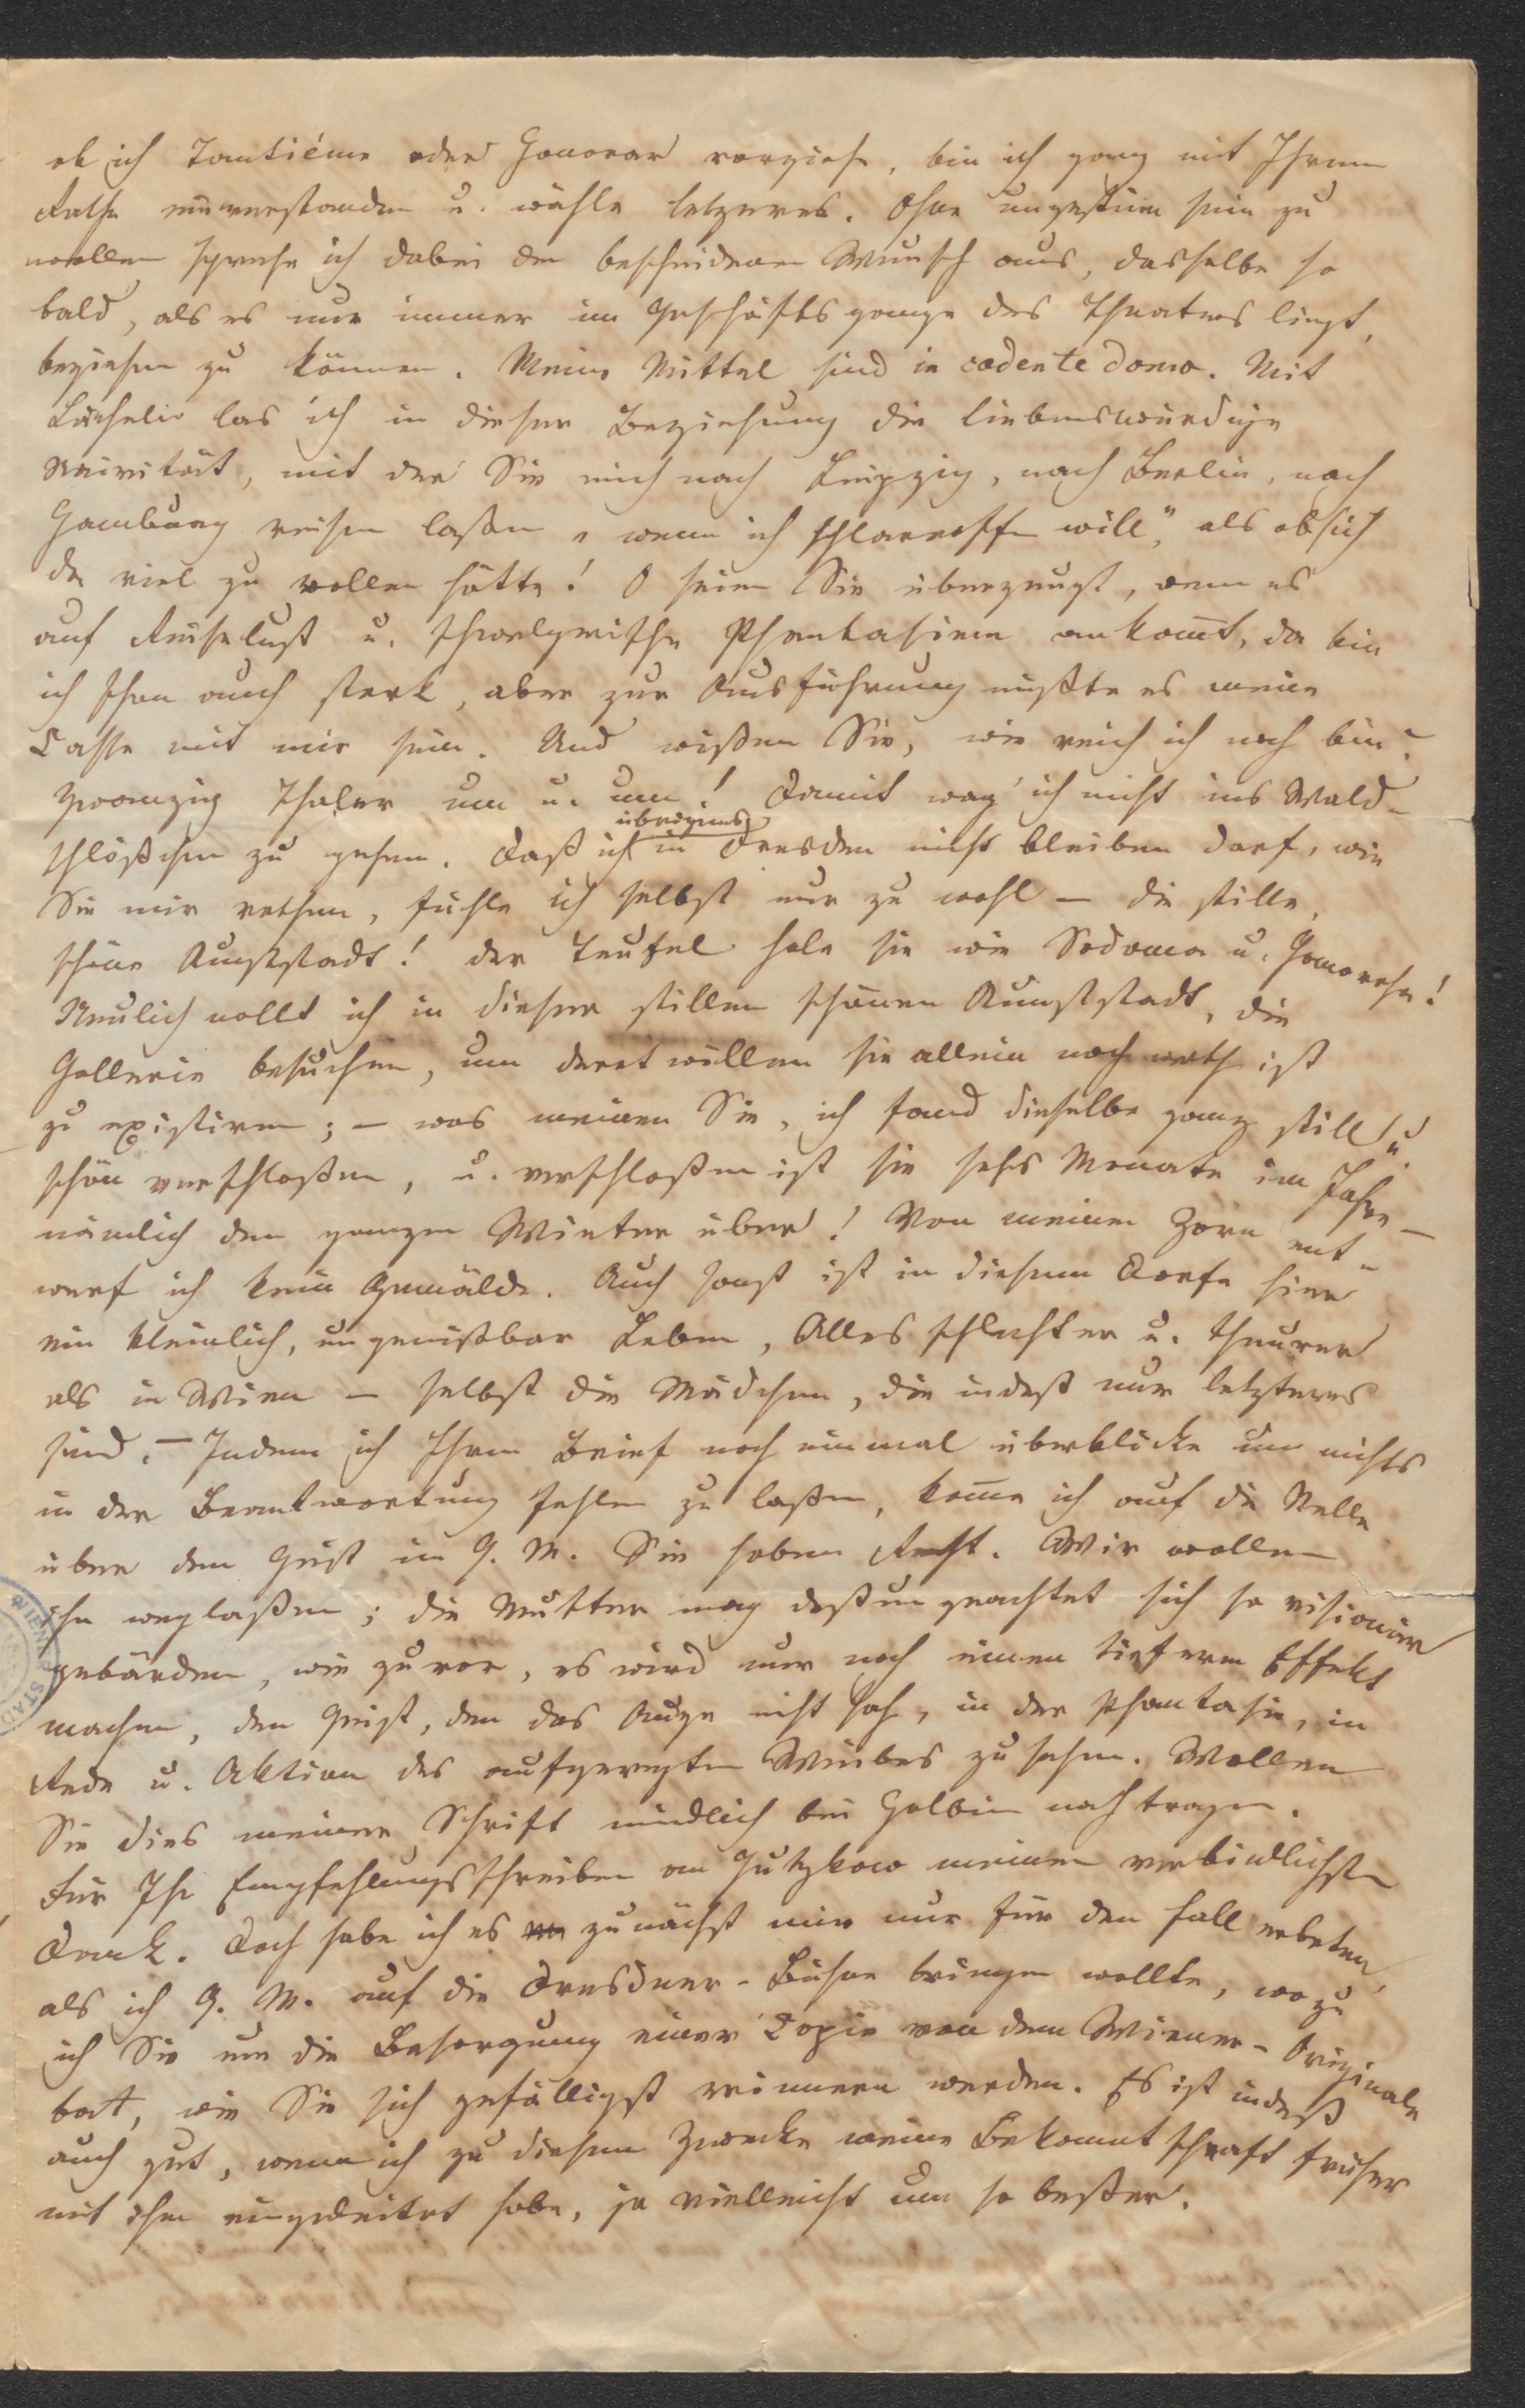 ob ich Tantième oder Honorar vorziehe, bin ich ganz mit Ihrem
Rathe einverstanden u. wähle letzeres. Ohne ungestüm sein zu
wollen spreche ich dabei den bescheidenen Wunsch aus, dasselbe so
bald, als es nur immer im Geschäftsgange des Theaters liegt,
beziehen zu können. Meine Mittel sind in cadente domo. Mit
Lächeln las ich in dieser Beziehung die liebenswürdige
Naivität, mit der Sie mich nach Leipzig, nach Berlin, nach
Hamburg reisen laßen „wenn ich schlaraffen will", als ob ich
da viel zu wollen hätte! O seien Sie überzeugt, wenn es
auf Reiselust u. schwelgerische Phantasieen ankom̄t, da bin
ich schon auch stark, aber zur Ausführung müßte es meine
Casse mit mir sein. Und wißen Sie, wie reich ich noch bin?
Zwanzig Thaler um u. um! Damit wag' ich nicht ins Wald-
schlößchen zu gehen. Daß ich übrigens in Dresden nicht bleiben darf, wie
Sie mir rathen, fühle ich selbst nur zu wohl – die stille,
schöne Kunststadt! der Teufel hole sie wie Sodoma u. Gomorrha!
Neulich wollt ich in dieser stillen schönen Kunststadt, die
Gallerie besuchen, um derentwillen sie allein noch werth ist
zu existiren; – was meinen Sie, ich fand dieselbe ganz still u.
schön verschloßen, u. verschloßen ist sie sechs Monate im Jahre –
nämlich den ganzen Winter über! Von meinem Zorn ent-
werf ich kein Gemälde. Auch sonst ist in diesem Dorfe hier
ein kleinlich, ungenießbar Leben, Alles schlechter u. theurer
als in Wien – selbst die Mädchen, die indeß nur letzteres
sind. – Indem ich Ihren Brief noch einmal überblicke um nichts
in der Beantwortung fehlen zu laßen, kom̄e ich auf die Stelle
über den Geist im G. M. Sie haben Recht. Wir wollen
ihn weglaßen; die Mutter mag deßungeachtet sich so visionär
gebärden, wie zuvor, es wird nur noch einen tiefern Effekt
machen, den Geist, den das Auge nicht sah, in der Phantasie, in
Rede u. Aktion des aufgeregten Weibes zu sehen. Wollen
Sie dies meiner Schrift mündlich bei Holbein nachtragen.
Für Ihr Empfehlungsschreiben an Gutzkow meinen verbindlichsten
Dank. Doch habe ich es zunächst mir nur für den Fall erbeten,
als ich G. M. auf die Dresdner-Bühne bringen wollte, wozu
ich Sie um die Besorgung einer Copie von dem Wiener-Originale
bat, wie Sie sich gefälligst erinnern werden. Es ist indeß
auch gut, wenn ich zu diesem Zwecke meine Bekanntschaft früher
mit ihm eingeleitet habe, ja vielleicht um so beßer.